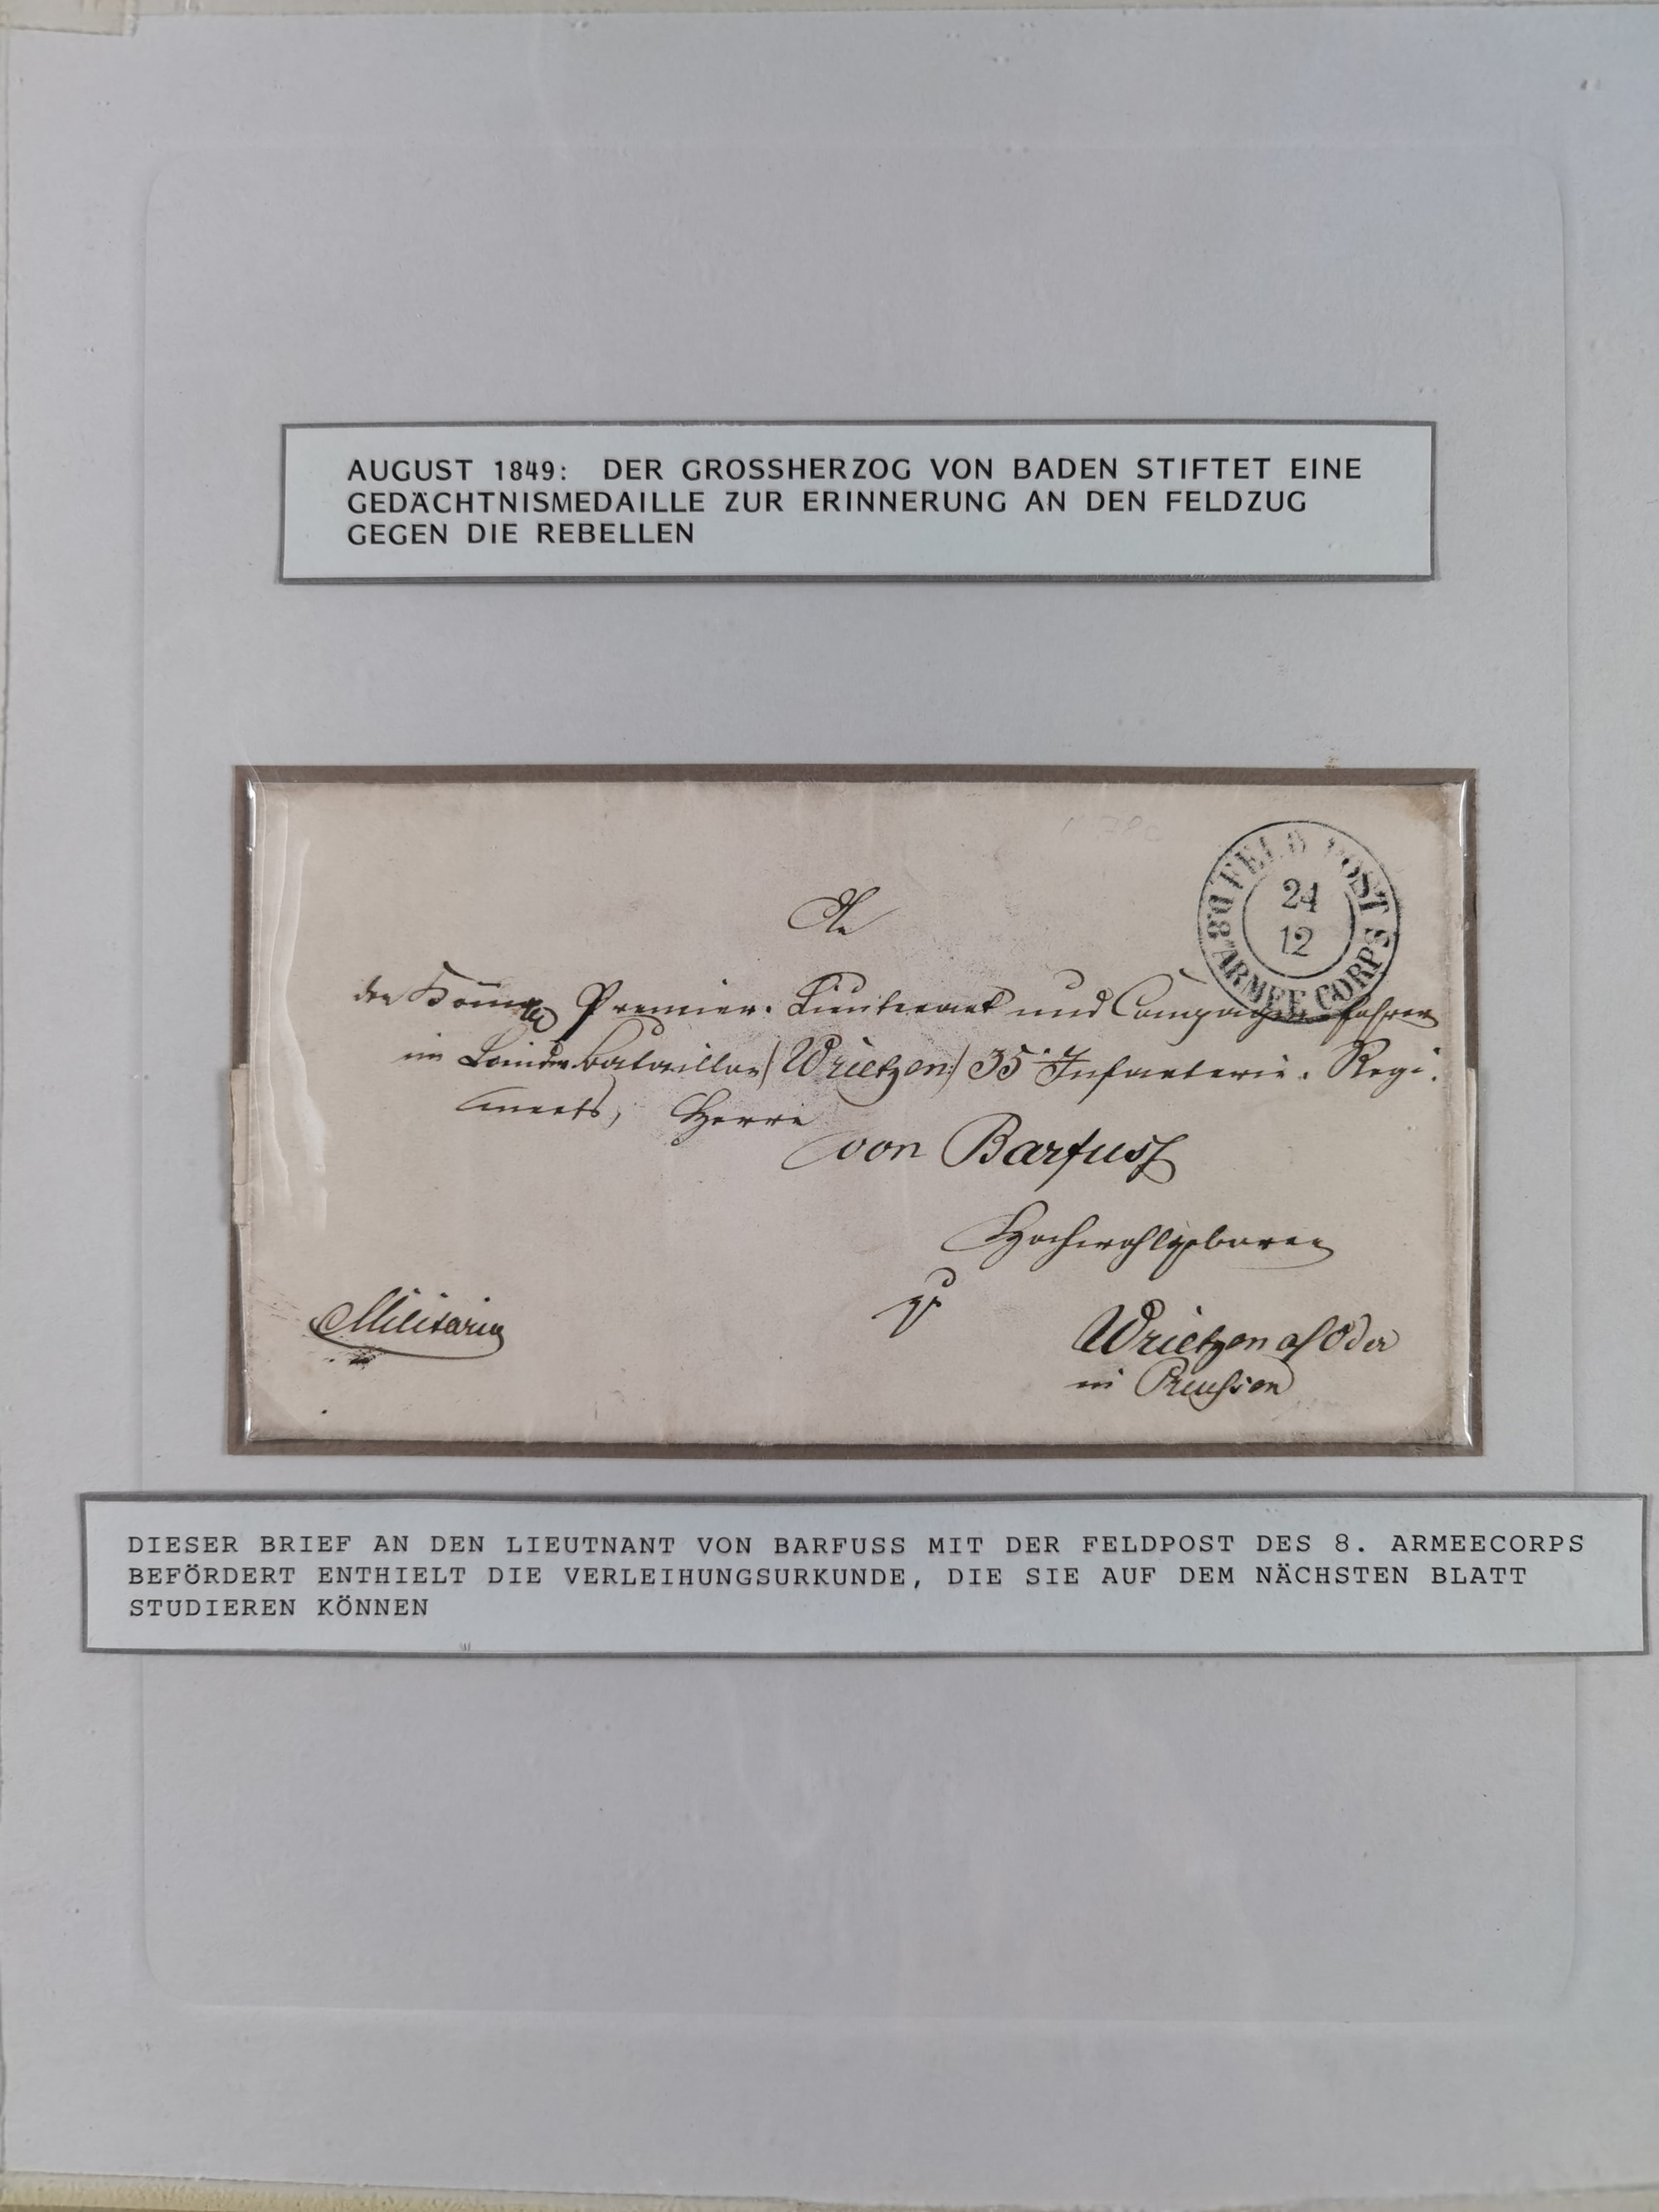 AUGUST 1849: DER GROSSHERZOG VON BADEN STIFTET EINE
GEDÄCHTNISMEDAILLE ZUR ERINNERUNG AN DEN FELDZUG
GEGEN DIE REBELLEN
FELD POST
24
12
ARMEE CORPS
An
den Premier-Lieutenant und Compagnie-führer
im Bataillon /:Wrietzen:/ 35. Infanterie-Regi-
ments, Herrn
von Barfuss
Hochwohlgeboren
zu
Militaria
Wrietzen a/Oder
in Preussen
DIESER BRIEF AN DEN LIEUTNANT VON BARFUSS MIT DER FELDPOST DES 8. ARMEECORPS
BEFÖRDERT ENTHIELT DIE VERLEIHUNGSURKUNDE, DIE SIE AUF DEM NÄCHSTEN BLATT
STUDIEREN KÖNNEN